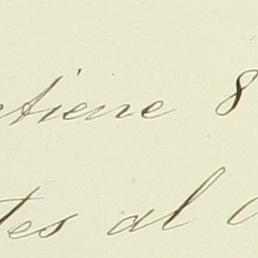 ntiene 8
tes al